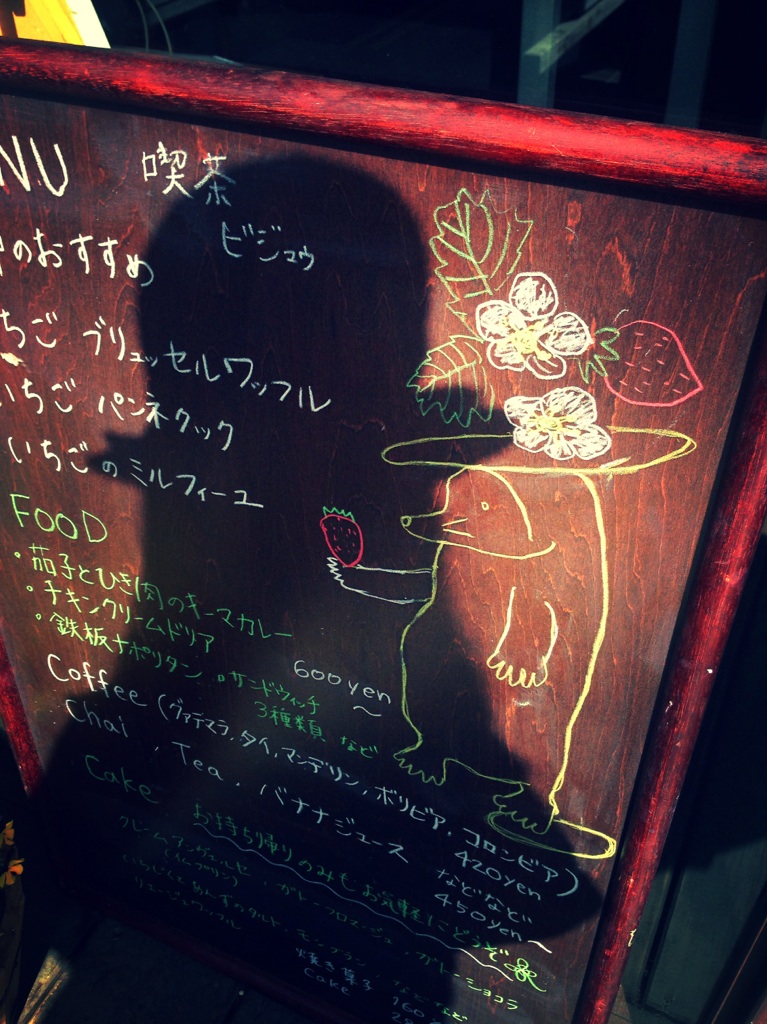 NU 喫茶
ビジュゥ
のおすすめ
ちご ブリュッセルワッフル
いちご パンネクック
いちごのミルフィーユ
FOOD
・茄子とひき肉のキーマカレー
・チキンクリームドリア
・鉄板ナポリタン ・サンドウィッチ
3種類 など
600yen
～
Coffee (グァテマラ,タイ,マンデリン,ボリビア,コロンビア)
などなど
420yen
Chai , Tea , バナナジュース
450yen～
Cake お持ち帰りのみもお気軽にどうぞ
クレームアンジュ
ガトーフロマージュ , ガトーショコラ
モンブラン
などなど
焼き菓子 160
Cake